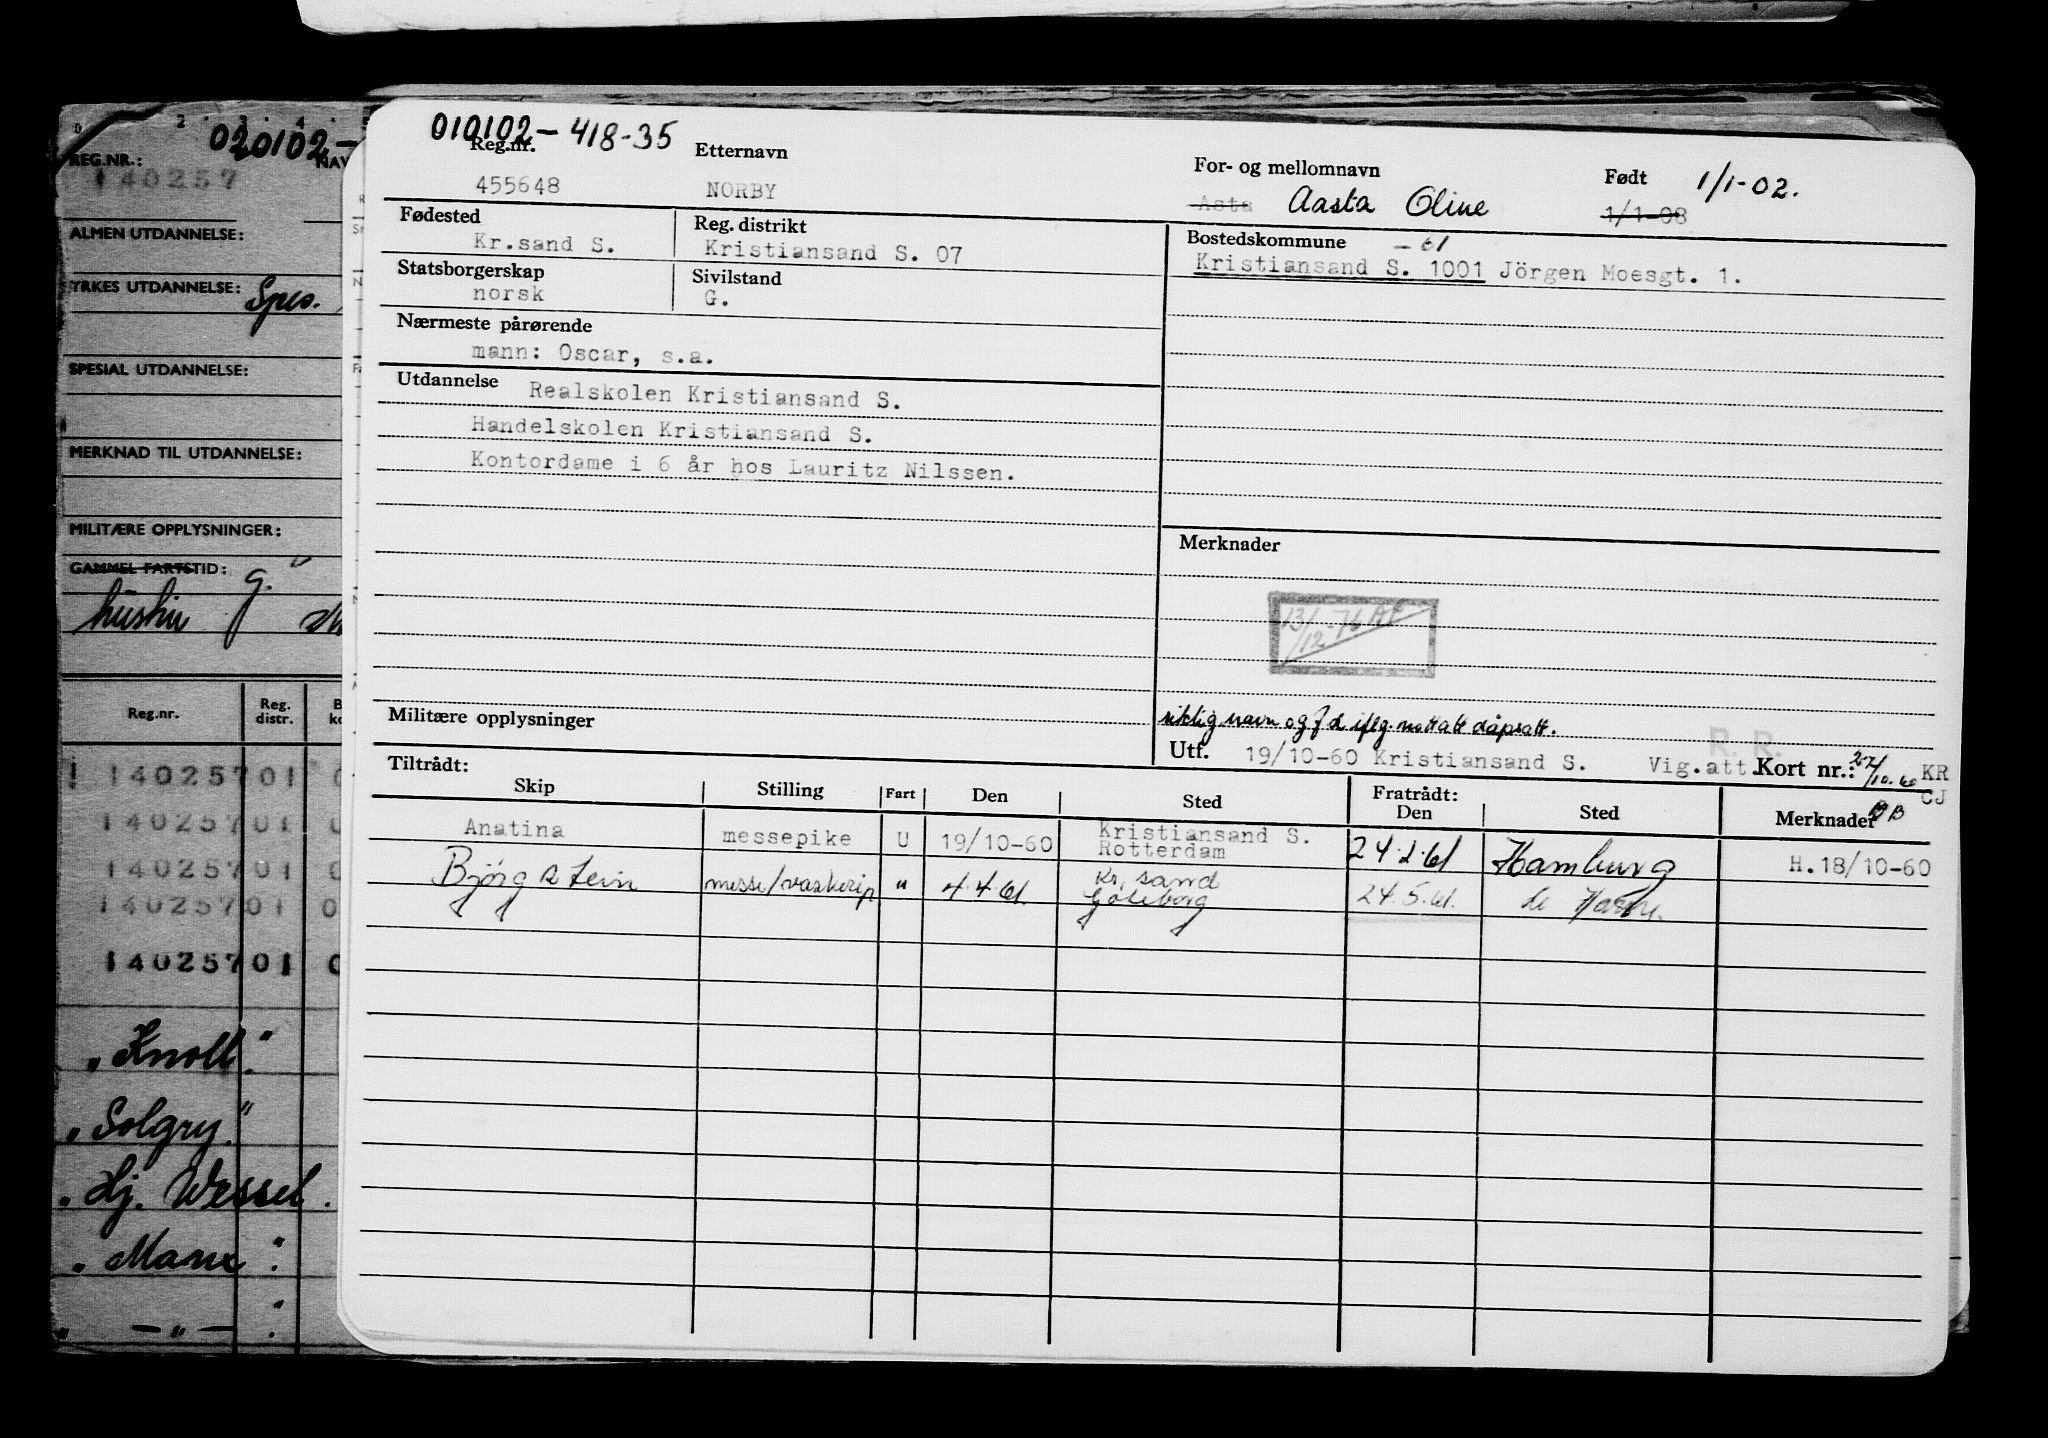 020102-
REG.NR.:
NAV
140257
ALMEN UTDANNELSE:
YRKES UTDANNELSE: Spes.
SPESIAL UTDANNELSE:
MERKNAD TIL UTDANNELSE:
MILITÆRE OPPLYSNINGER:
GAMMEL FARTSTID: G.
Reg.nr. Reg. distr.
14025701 0
14025701 0
14025701 0
14025701 0
14025701 0
"Knoll".
"Solgry."
"Hj. Wessel.
010102-418-35
Reg.nr. Etternavn For- og mellomnavn Født 1/1-02.
455648 NORBY Asta Aasta Oline 1/1-08
Fødested Reg. distrikt Bostedskommune -61
Kr.sand S. Kristiansand S. 07 Kristiansand S. 1001 Jörgen Moesgt. 1.
Statsborgerskap Sivilstand
norsk G.
Nærmeste pårørende
mann: Oscar, s.a.
Utdannelse Realskolen Kristiansand S.
Handelskolen Kristiansand S.
Kontordame i 6 år hos Lauritz Nilssen.
Merknader
13/12-76 AF
Militære opplysninger
riktig navn og f.d. iflg. mottatt dåpsatt.
R. R.
Utf. 19/10-60 Kristiansand S. Vig.att. Kort nr.: KR
CJ
Tiltrådt: Fratrådt:
Skip Stilling Fart Den Sted Den Sted Merknader BB
Anatina messepike U 19/10-60 Kristiansand S. Rotterdam 24.2.61 Hamburg H.18/10-60
Björg Stein messe/vaskerip " 4.4.61. Kr. sand Göteborg 24.5.61. le Havre.